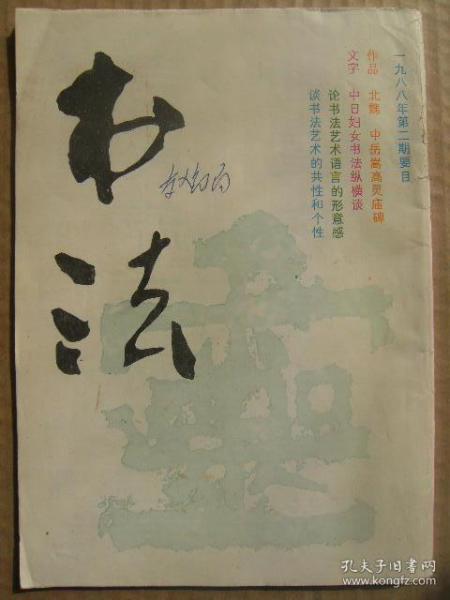 书法
一九八八年第二期要目
作品 北魏 中岳嵩高灵庙碑
文字 中日妇女书法纵横谈
论书法艺术语言的形意感
谈书法艺术的共性和个性
孔夫子旧书网
www.kongfz.com